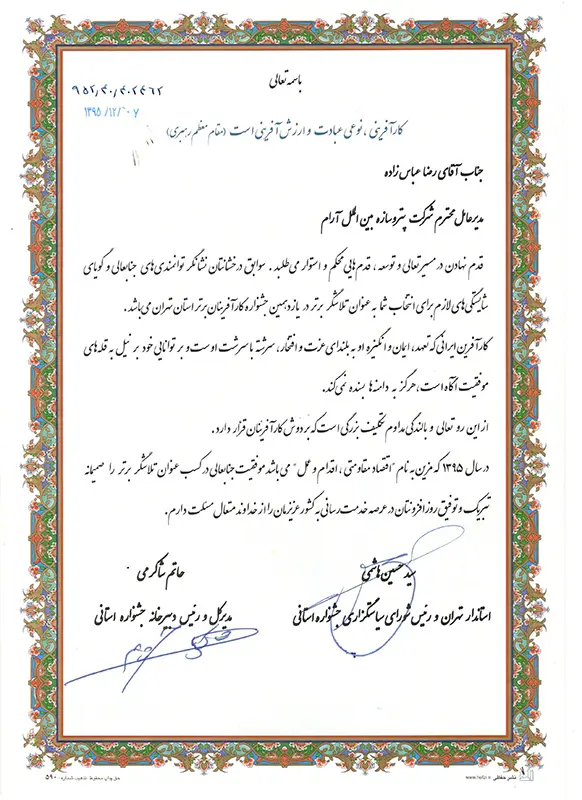 باسمه تعالی
۹۵۲/۳۰/۳۰۲۴۶۲
۱۳۹۵/۱۲/۰۷
کارآفرینی ، نوعی عبادت و ارزش آفرینی است (مقام معظم رهبری)
جناب آقای رضا عباس زاده
مدیرعامل محترم شرکت پتروسازه بین الملل آرام
قدم نهادن در مسیر تعالی و توسعه ، قدم هایی محکم و استوار می طلبد . سوابق درخشانتان نشانگر توانمندی های جنابعالی و گویای
شایستگی های لازم برای انتخاب شما به عنوان تلاشگر برتر در یازدهمین جشنواره کارآفرینان برتر استان تهران می باشد .
کارآفرین ایرانی که تعهد، ایمان و انگیزه او به بلندای عزت و افتخار ، سرشته با سرشت اوست و بر توانایی خود بر نیل به قله های
موفقیت آگاه است ، هرگز به دامنه ها بسنده نمی کند.
از این رو تعالی و بالندگی مداوم تکلیف بزرگی است که بر دوش کارآفرینان قرار دارد .
در سال ۱۳۹۵ که مزین به نام "اقتصاد مقاومتی ، اقدام و عمل" می باشد موفقیت جنابعالی در کسب عنوان تلاشگر برتر را صمیمانه
تبریک و توفیق روزافزونتان در عرصه خدمت رسانی به کشور عزیزمان را از خداوند متعال مسئلت دارم .
سید حسین هاشمی
استاندار تهران و رئیس شورای سیاستگزاری جشنواره استانی
حاتم شاکرمی
مدیرکل و رئیس دبیرخانه جشنواره استانی
نشر حفظی
حق چاپ محفوظ تذهیب شماره: ۵۹۰